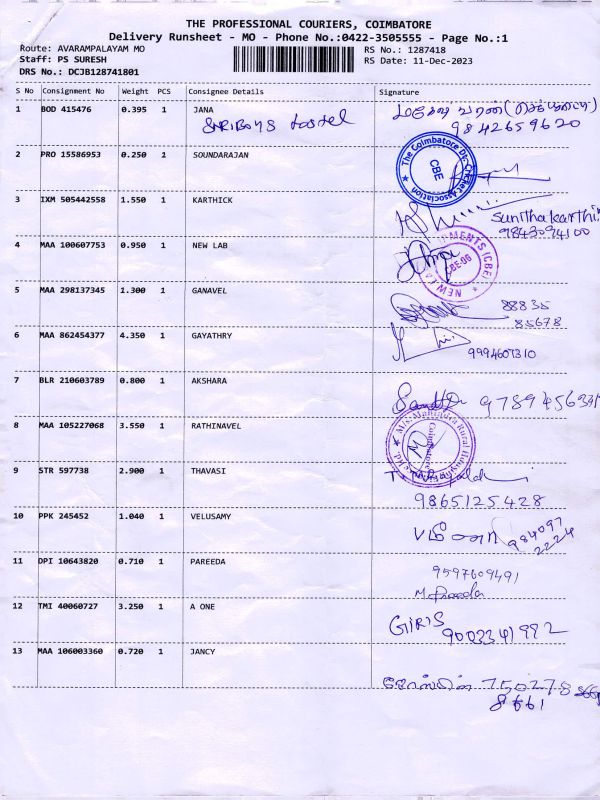 THE PROFESSIONAL COURIERS, COIMBATORE
Delivery Runsheet - MO - Phone No.:0422-3505555 - Page No.:1
Route: AVARAMPALAYAM MO
RS No.: 1287418
Staff: PS SURESH
RS Date: 11-Dec-2023
DRS No.: DCJB128741801
S No Consignment No Weight PCS Consignee Details Signature
1 BOD 415476 0.395 1 JANA
9842659620
2 PRO 15586953 0.250 1 SOUNDARAJAN
The Coimbatore Dt. Cricket Association
CBE
3 IXM 505442558 1.550 1 KARTHICK
Sunithakarthi
9843094100
4 MAA 100607753 0.950 1 NEW LAB
CBE-06
5 MAA 298137345 1.300 1 GANAVEL
88835
85678
6 MAA 862454377 4.350 1 GAYATHRY
9994607310
7 BLR 210603789 0.800 1 AKSHARA
8 MAA 105227068 3.550 1 RATHINAVEL
M/s. Mahindra Rural Housing
Coimbatore
9 STR 597738 2.900 1 THAVASI
9865125428
10 PPK 245452 1.040 1 VELUSAMY
984097
2224
11 DPI 10643820 0.710 1 PAREEDA
9597609491
12 TMI 40060727 3.250 1 A ONE
GIRIS
9003341992
13 MAA 106003360 0.720 1 JANCY
750278
8661